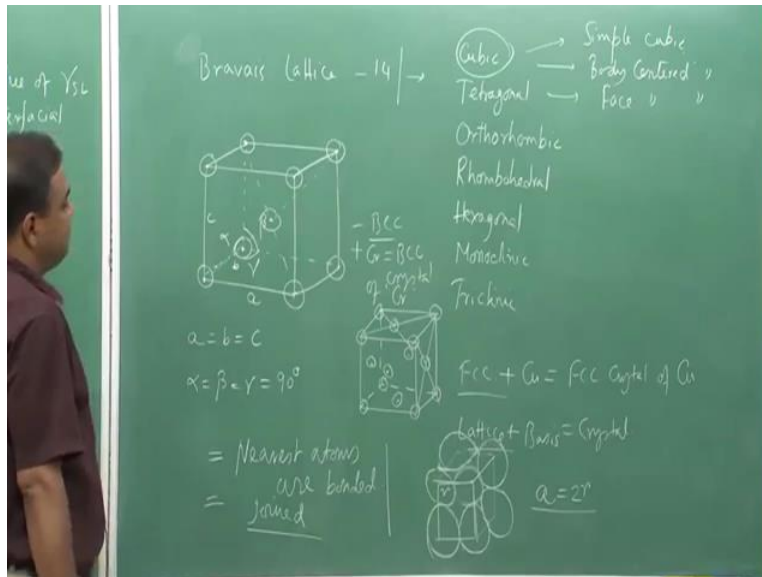 ue of γSL
erfacial
Bravais Lattice - 14 →
Cubic → Simple cubic
→ Body Centered "
Tetragonal → Face " "
Orthorhombic
Rhombohedral
Hexagonal
Monoclinic
Triclinic
c
α
b
γ
a
- BCC
+ Cr = BCC
Crystal
of
Cr
a = b = c
α = β = γ = 90°
FCC + Cu = FCC Crystal of Cu
Lattice + Basis = Crystal
= Nearest atoms
are bonded
= Joined
r
a = 2r